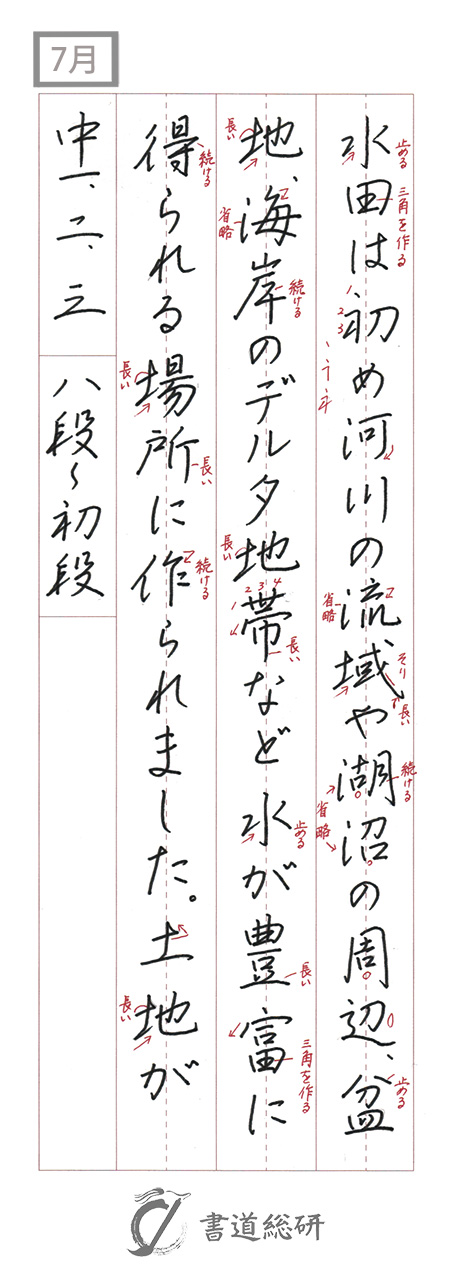 7月
水田は、初め河川の流域や湖沼の周辺、盆
地、海岸のデルタ地帯など水が豊富に
得られる場所に作られました。土地が
中一、二、三
八段〜初段
止める
三角を作る
1
2
3
、ラネ
省略
そり
長い
続ける
省略
止める
長い
続ける
省略
続ける
長い
1 2 3 4
長い
止める
長い
三角を作る
続ける
長い
長い
続ける
長い
書道総研